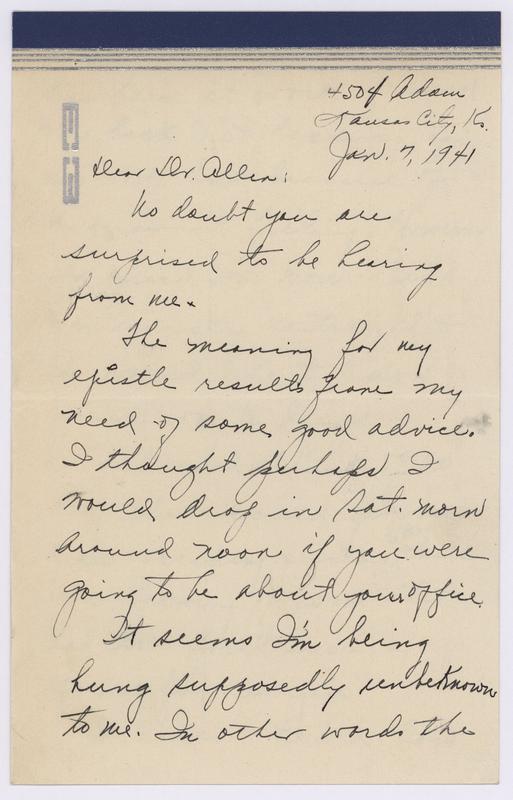 4504 Adam
Kansas City, Ks.
Jan. 7, 1941
Dear Dr. Allen:
No doubt you are
surprised to be hearing
from me.
The meaning for my
epistle results from my
need of some good advice.
I thought perhaps I
would drop in Sat. morn
around noon if you were
going to be about your office.
It seems I'm being
hung supposedly unbeknown
to me. In other words the